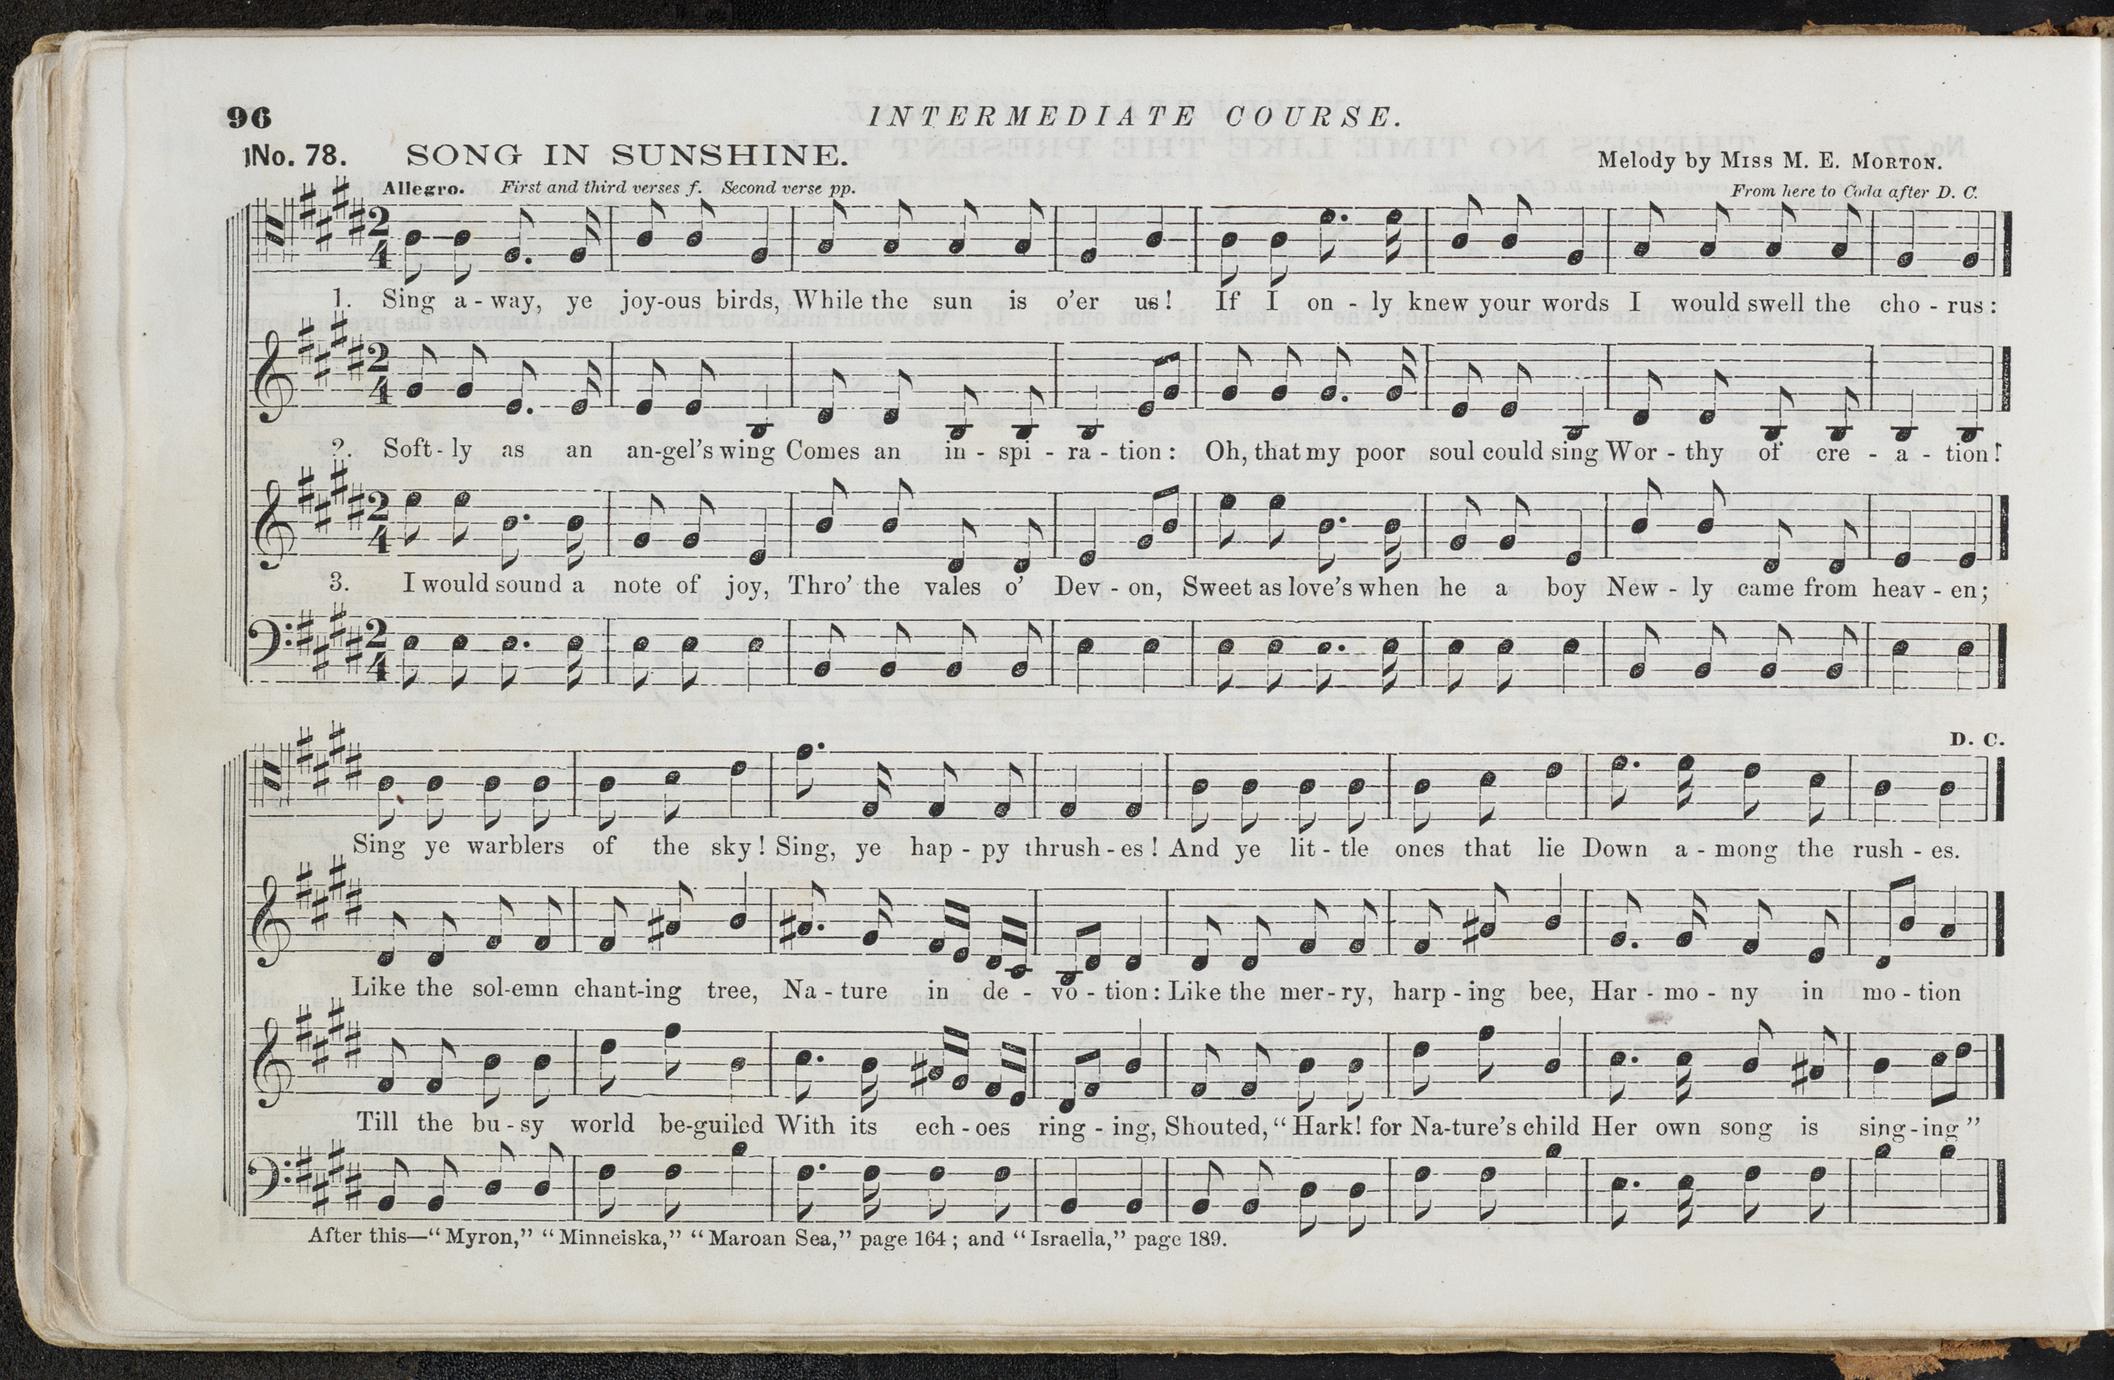 96
INTERMEDIATE COURSE.
No. 78. SONG IN SUNSHINE. Melody by Miss M. E. Morton.
Allegro. First and third verses f. Second verse pp. From here to Coda after D. C.
2 4
1. Sing a - way, ye joy-ous birds, While the sun is o'er us! If I on - ly knew your words I would swell the cho - rus:
2 4
2. Soft - ly as an an-gel's wing Comes an in - spi - ra - tion: Oh, that my poor soul could sing Wor - thy of cre - a - tion!
2 4
3. I would sound a note of joy, Thro' the vales o' Dev - on, Sweet as love's when he a boy New - ly came from heav - en;
2 4
D. C.
Sing ye warblers of the sky! Sing, ye hap - py thrush - es! And ye lit - tle ones that lie Down a - mong the rush - es.
Like the sol-emn chant-ing tree, Na - ture in de - vo - tion: Like the mer - ry, harp - ing bee, Har - mo - ny in mo - tion
Till the bu - sy world be-guiled With its ech - oes ring - ing, Shouted, "Hark! for Na-ture's child Her own song is sing - ing"
After this—"Myron," "Minneiska," "Maroan Sea," page 164; and "Israella," page 189.